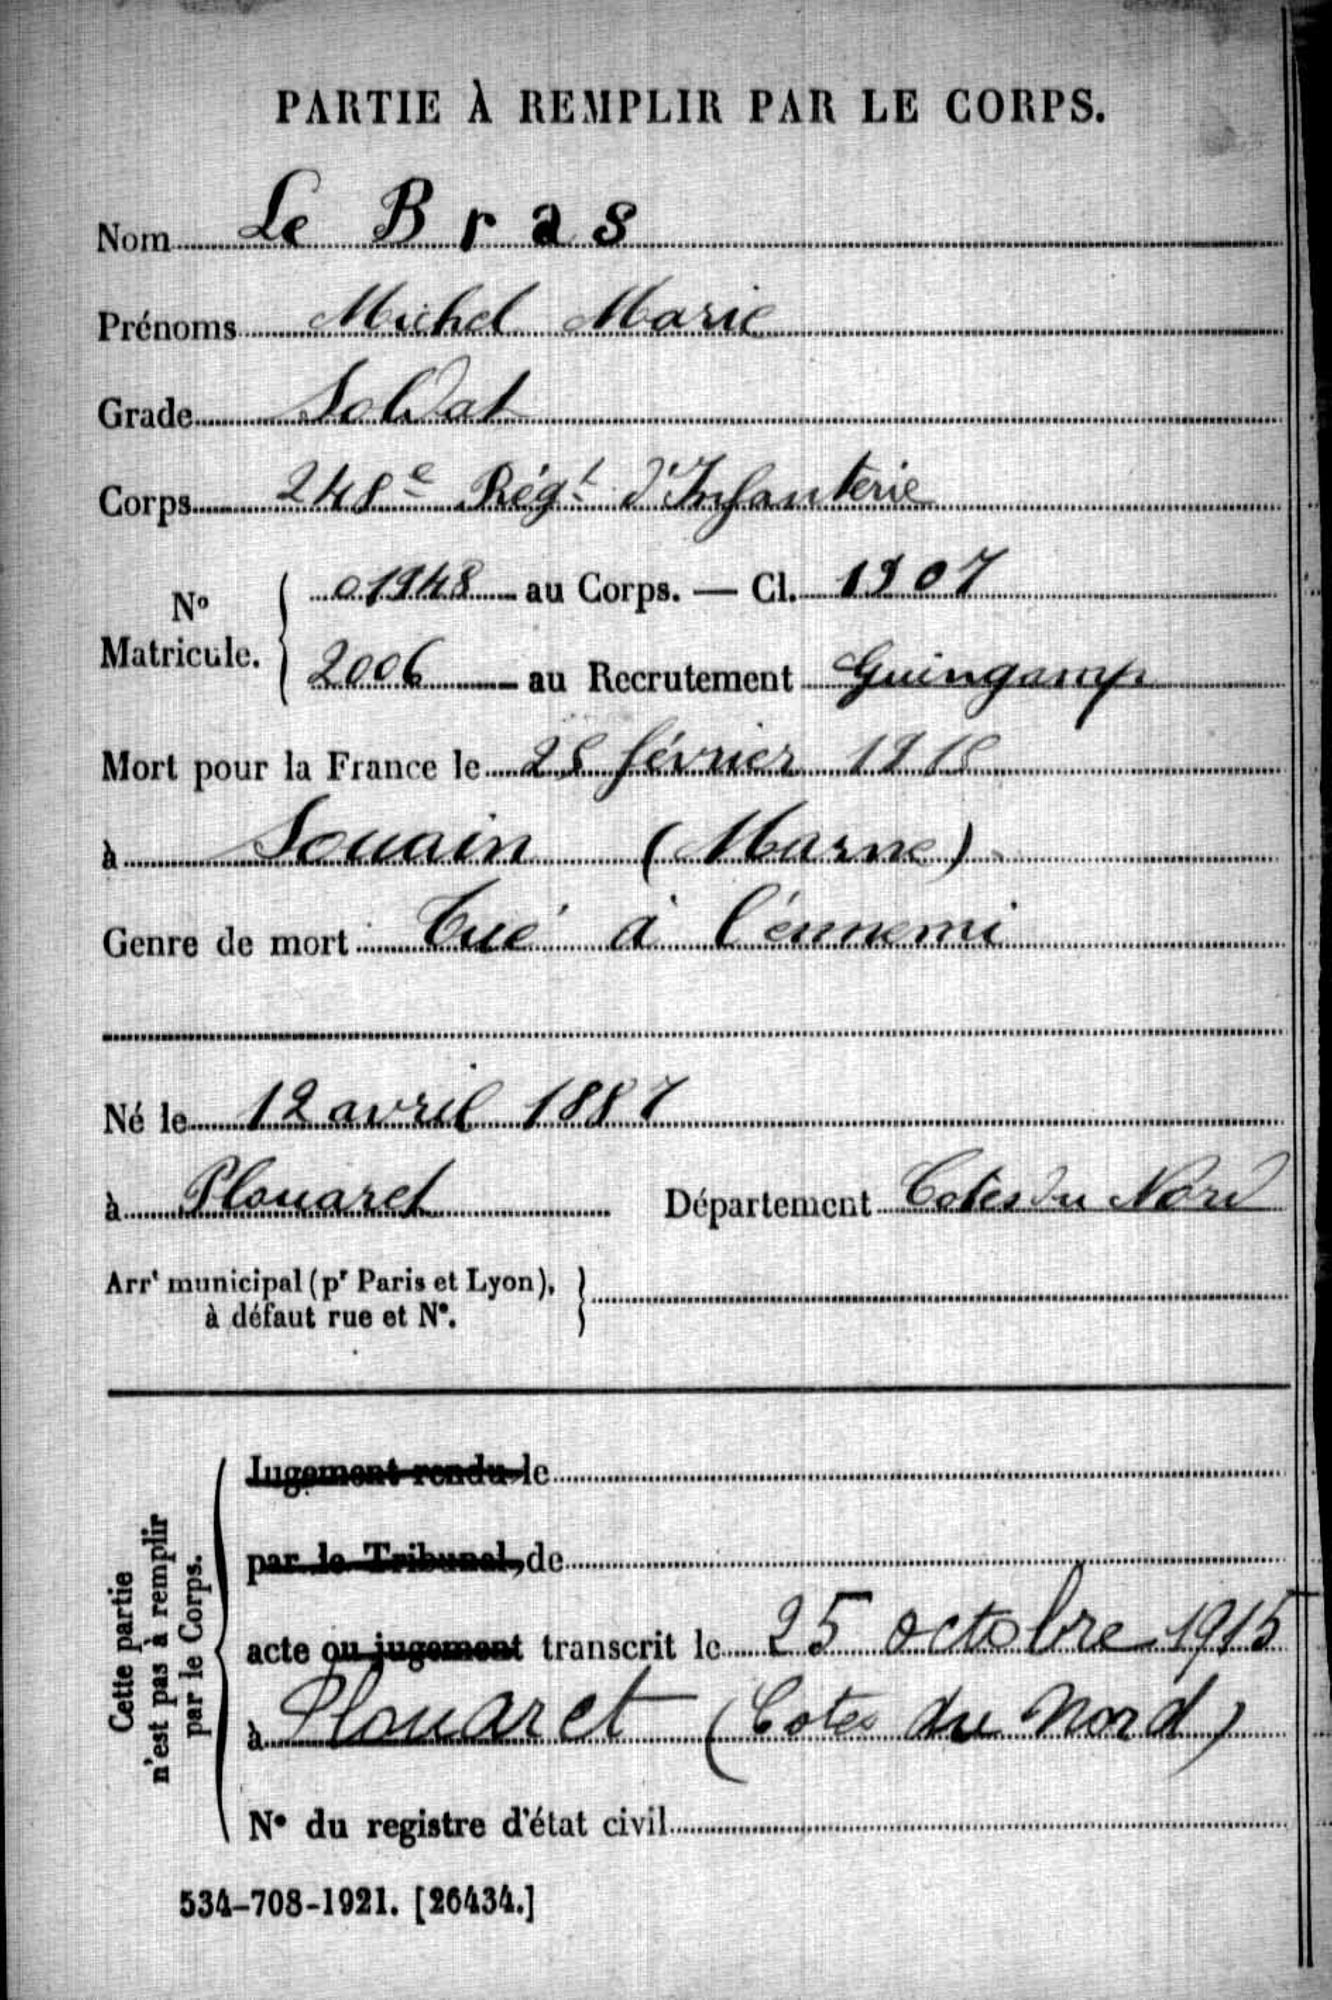 PARTIE À REMPLIR PAR LE CORPS.
Nom Le Bras
Prénoms Michel Marie
Grade Soldat
Corps 248e Régt d'Infanterie
No Matricule. 01948 au Corps. — Cl. 1907
2006 au Recrutement Guingamp
Mort pour la France le 28 février 1915
à Souain (Marne)
Genre de mort Tué à l'ennemi
Né le 12 avril 1887
à Plouaret Département Cotes du Nord
Arrt municipal (pr Paris et Lyon),
à défaut rue et N°.
Cette partie
n'est pas à remplir
par le Corps.
Jugement rendu le
par le Tribunal, de
acte ou jugement transcrit le 25 octobre 1915
à Plouaret (Cotes du Nord)
N° du registre d'état civil
534-708-1921. [26434.]